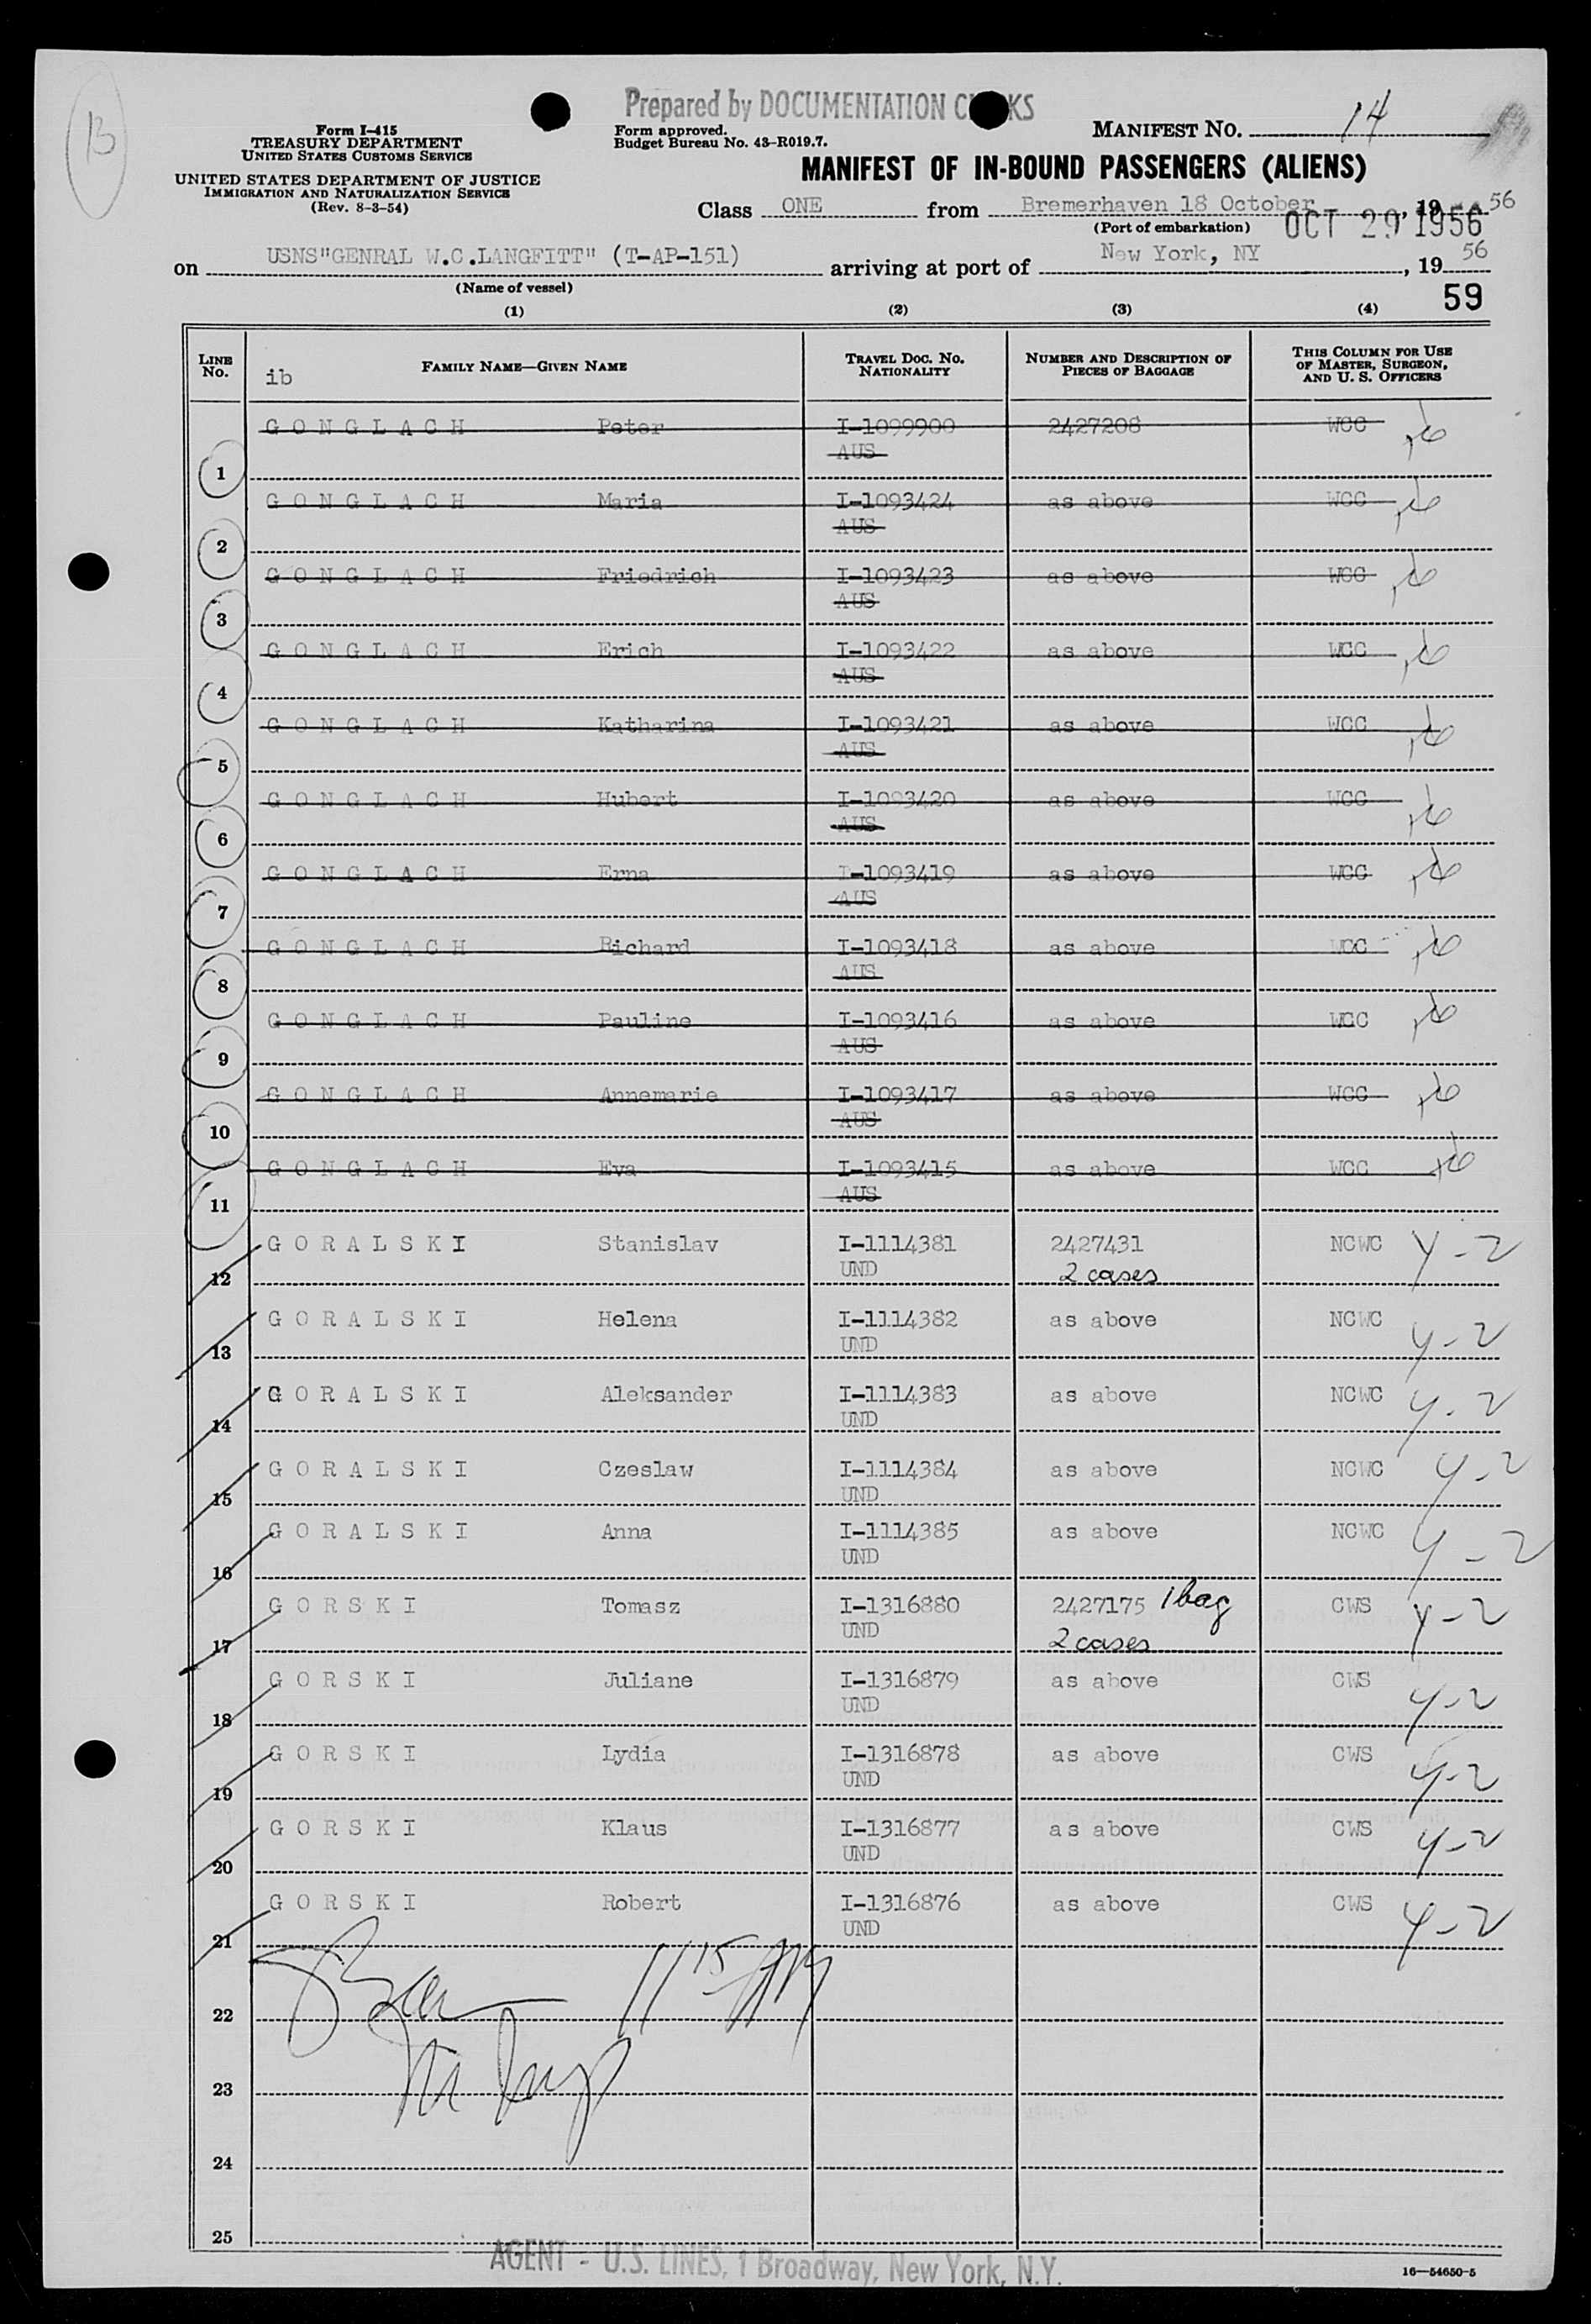 B
Prepared by DOCUMENTATION
Form I-415
TREASURY DEPARTMENT
UNITED STATES CUSTOMS SERVICE
UNITED STATES DEPARTMENT OF JUSTICE
IMMIGRATION AND NATURALIZATION SERVICE
(Rev. 8-3-54)
Form approved.
Budget Bureau No. 43-R019.7.
MANIFEST NO. 14
MANIFEST OF IN-BOUND PASSENGERS (ALIENS)
Class ONE from Bremerhaven 18 October, 19 56
(Port of embarkation)
OCT 29 1956
on USNS"GENRAL W.C.LANGFITT" (T-AP-151) arriving at port of New York, NY, 19 56
(Name of vessel)
59
(1) (2) (3) (4)
LINE No. ib FAMILY NAME—GIVEN NAME TRAVEL DOC. NO. NATIONALITY NUMBER AND DESCRIPTION OF PIECES OF BAGGAGE THIS COLUMN FOR USE OF MASTER, SURGEON, AND U. S. OFFICERS
G O N G L A C H Peter I-1099900 2427208 WCC
AUS
1
G O N G L A C H Maria I-1093424 as above WCC
AUS
2
G O N G L A C H Friedrich I-1093423 as above WCC
AUS
3
G O N G L A C H Erich I-1093422 as above WCC
AUS
4
G O N G L A C H Katharina I-1093421 as above WCC
AUS
5
G O N G L A C H Hubert I-1093420 as above WCC
AUS
6
G O N G L A C H Erna I-1093419 as above WCC
AUS
7
G O N G L A C H Richard I-1093418 as above WCC
AUS
8
G O N G L A C H Pauline I-1093416 as above WCC
AUS
9
G O N G L A C H Annemarie I-1093417 as above WCC
AUS
10
G O N G L A C H Eva I-1093415 as above WCC
AUS
11
G O R A L S K I Stanislav I-1114381 2427431 NCWC Y-2
UND 2 cases
12
G O R A L S K I Helena I-1114382 as above NCWC Y-2
UND
13
G O R A L S K I Aleksander I-1114383 as above NCWC Y-2
UND
14
G O R A L S K I Czeslaw I-1114384 as above NCWC Y-2
UND
15
G O R A L S K I Anna I-1114385 as above NCWC Y-2
UND
16
G O R S K I Tomasz I-1316880 2427175 1 bag CWS Y-2
UND 2 cases
17
G O R S K I Juliane I-1316879 as above CWS Y-2
UND
18
G O R S K I Lydia I-1316878 as above CWS Y-2
UND
19
G O R S K I Klaus I-1316877 as above CWS Y-2
UND
20
G O R S K I Robert I-1316876 as above CWS Y-2
UND
21
11 15 AM
22
23
24
25
AGENT - U.S. LINES, 1 Broadway, New York, N.Y.
16—54650-5